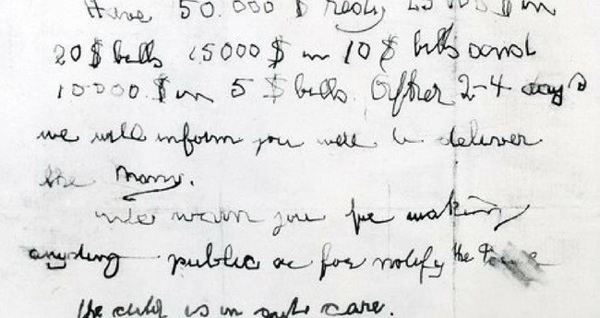 Have 50.000 $ redy 25000 $ in
20 $ bills 15000 $ in 10 $ bills and
10000 $ in 5 $ bills. After 2-4 days
we will inform you were to deliver
the Mony.
We warn you for making
anyding public or for notify the
the child is in gute care.